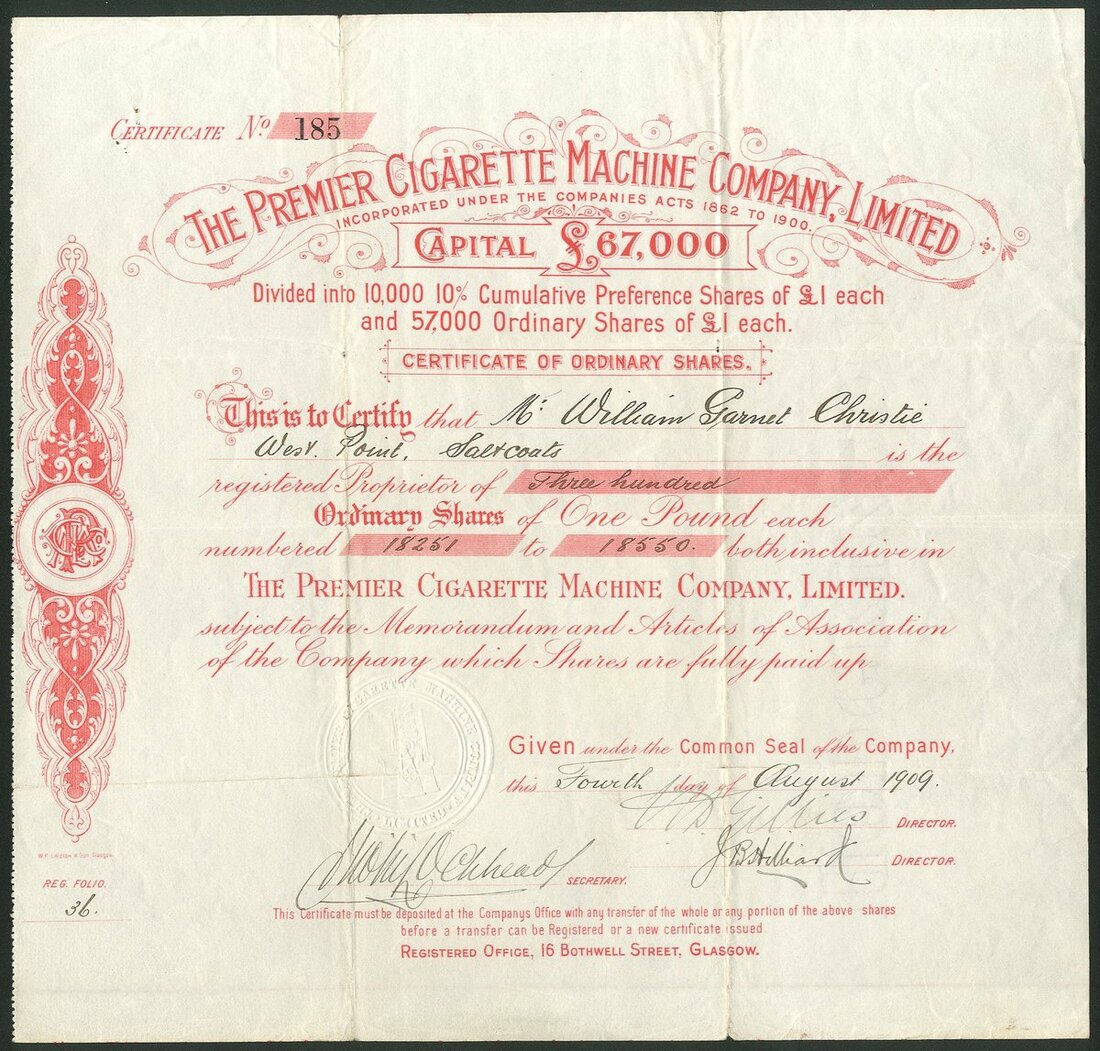 CERTIFICATE No 185
THE PREMIER CIGARETTE MACHINE COMPANY, LIMITED
INCORPORATED UNDER THE COMPANIES ACTS 1862 TO 1900.
CAPITAL £67,000
Divided into 10,000 10% Cumulative Preference Shares of £1 each
and 57,000 Ordinary Shares of £1 each.
CERTIFICATE OF ORDINARY SHARES.
This is to Certify that Mr William Garnet Christie
West Point, Saltcoats is the
registered Proprietor of Three hundred
Ordinary Shares of One Pound each
numbered 18251 to 18550. both inclusive in
THE PREMIER CIGARETTE MACHINE COMPANY, LIMITED.
subject to the Memorandum and Articles of Association
of the Company which Shares are fully paid up
Given under the Common Seal of the Company,
this Fourth day of August 1909.
DIRECTOR.
J B Hilliard DIRECTOR.
SECRETARY.
REG. FOLIO.
36.
This Certificate must be deposited at the Companys Office with any transfer of the whole or any portion of the above shares
before a transfer can be Registered or a new certificate issued
REGISTERED OFFICE, 16 BOTHWELL STREET, GLASGOW.